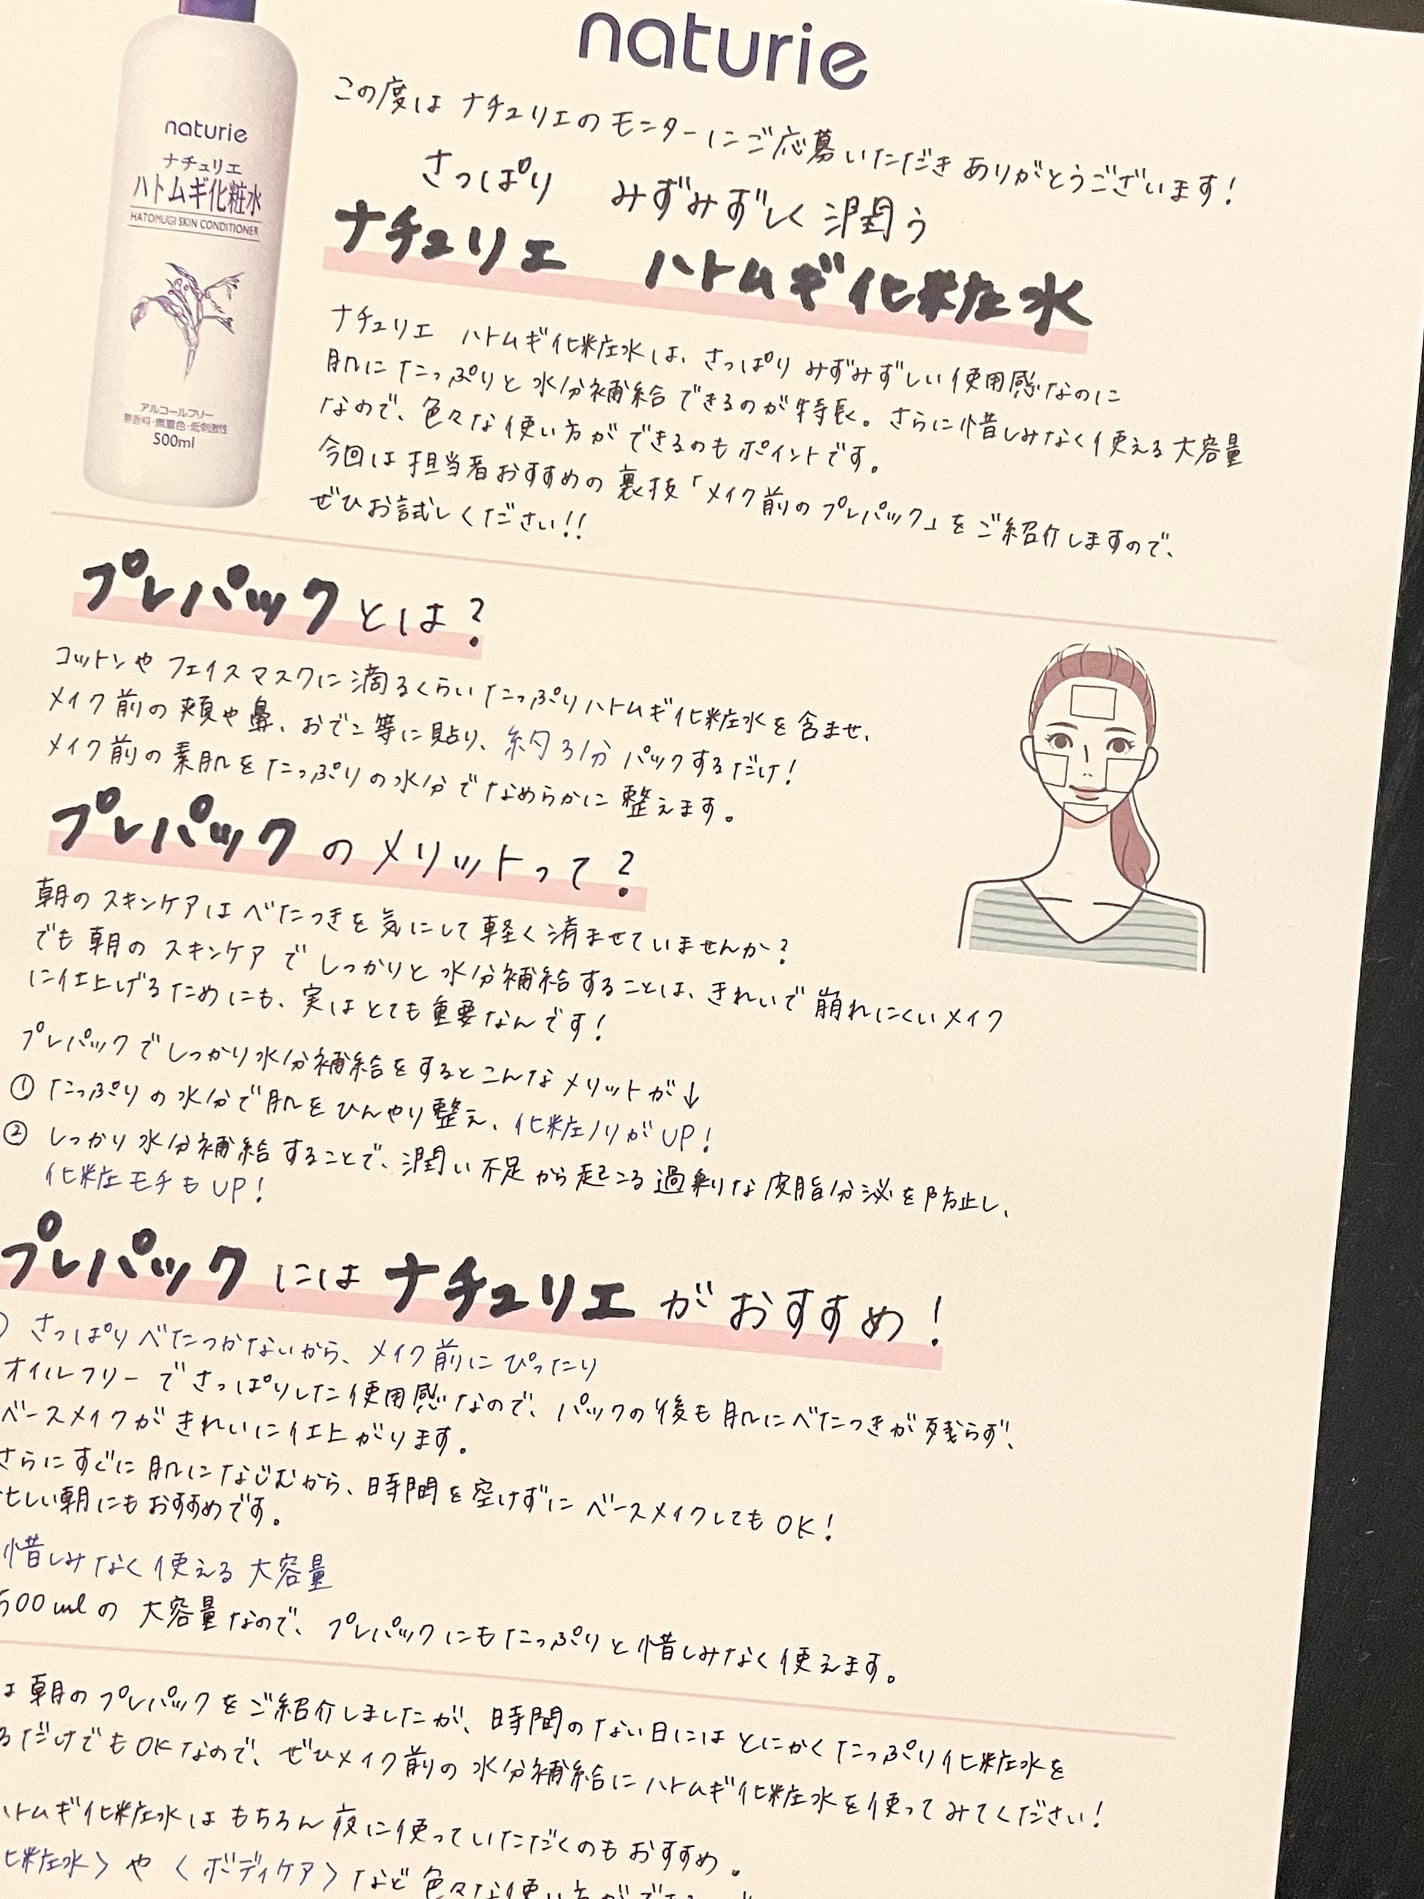 naturie
naturie
ナチュリエ
ハトムギ化粧水
HATOMUGI SKIN CONDITIONER
アルコールフリー
無香料・無着色・低刺激性
500ml
この度は ナチュリエのモニターにご応募いただき ありがとうございます!
さっぱり みずみずしく潤う
ナチュリエ ハトムギ化粧水
ナチュリエ ハトムギ化粧水は、さっぱり みずみずしい使用感なのに
肌にたっぷりと 水分補給できるのが特長。さらに惜しみなく使える大容量
なので、色々な使い方ができるのもポイントです。
今回は担当者おすすめの裏技「メイク前のプレパック」をご紹介しますので、
ぜひお試しください!!
プレパックとは?
コットンや フェイスマスクに滴るくらい たっぷりハトムギ化粧水を含ませ、
メイク前の頬や鼻、おでこ等に貼り、約3分 パックするだけ!
メイク前の素肌をたっぷりの水分でなめらかに整えます。
プレパックのメリットって?
朝のスキンケアはべたつきを気にして軽く済ませていませんか?
でも朝のスキンケアでしっかりと水分補給することは、きれいで崩れにくいメイク
に仕上げるためにも、実はとても重要なんです!
プレパックでしっかり水分補給をするとこんなメリットが↓
① たっぷりの水分で肌をひんやり整え、化粧ノリがUP!
② しっかり水分補給することで、潤い不足から起こる過剰な皮脂分泌を防止し、
化粧モチもUP!
プレパックにはナチュリエがおすすめ!
さっぱりべたつかないから、メイク前にぴったり
オイルフリーでさっぱりした使用感なので、パックの後も肌にべたつきが残らず、
ベースメイクがきれいに仕上がります。
さらにすぐに肌になじむから、時間を空けずにベースメイクしてもOK!
忙しい朝にもおすすめです。
惜しみなく使える大容量
500mlの大容量なので、プレパックにもたっぷりと惜しみなく使えます。
は朝のプレパックをご紹介しましたが、時間のない日にはとにかくたっぷり化粧水を
るだけでもOKなので、ぜひメイク前の水分補給にハトムギ化粧水を使ってみてください!
ハトムギ化粧水はもちろん夜に使っていただくのもおすすめ。
化粧水〉や〈ボディケア〉など色々な使い方ができ